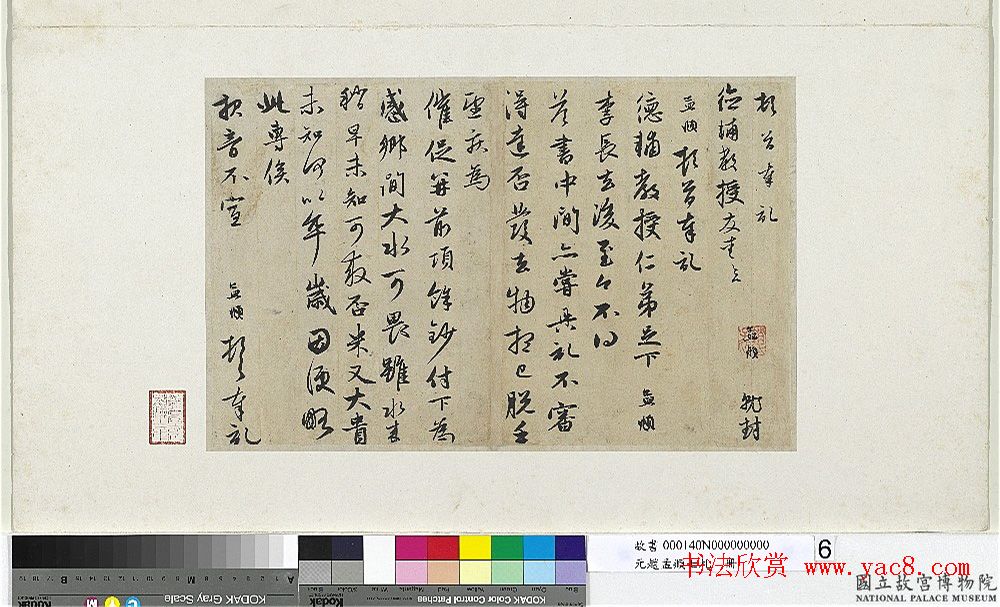 頓首奉記
德輔教授友愛足下
孟頫 就封
孟頫頓首奉記
德輔教授仁弟足下 孟頫
李長去後至今不得
答書中間亦嘗具記不審
得達否發去物想已脫手
望疾為
催促并前項餘鈔付下為
感鄉間大水可畏雖水來
稍早未知可救否米又大貴
未知何以卒歲因便略
此專俟
報音不宣 孟頫頓首奉記
KODAK Gray Scale
Kodak
KODAK Color Control Patches
故書 000140N000000000
6
书法欣赏 www.yac8.com
國立故宮博物院
NATIONAL PALACE MUSEUM